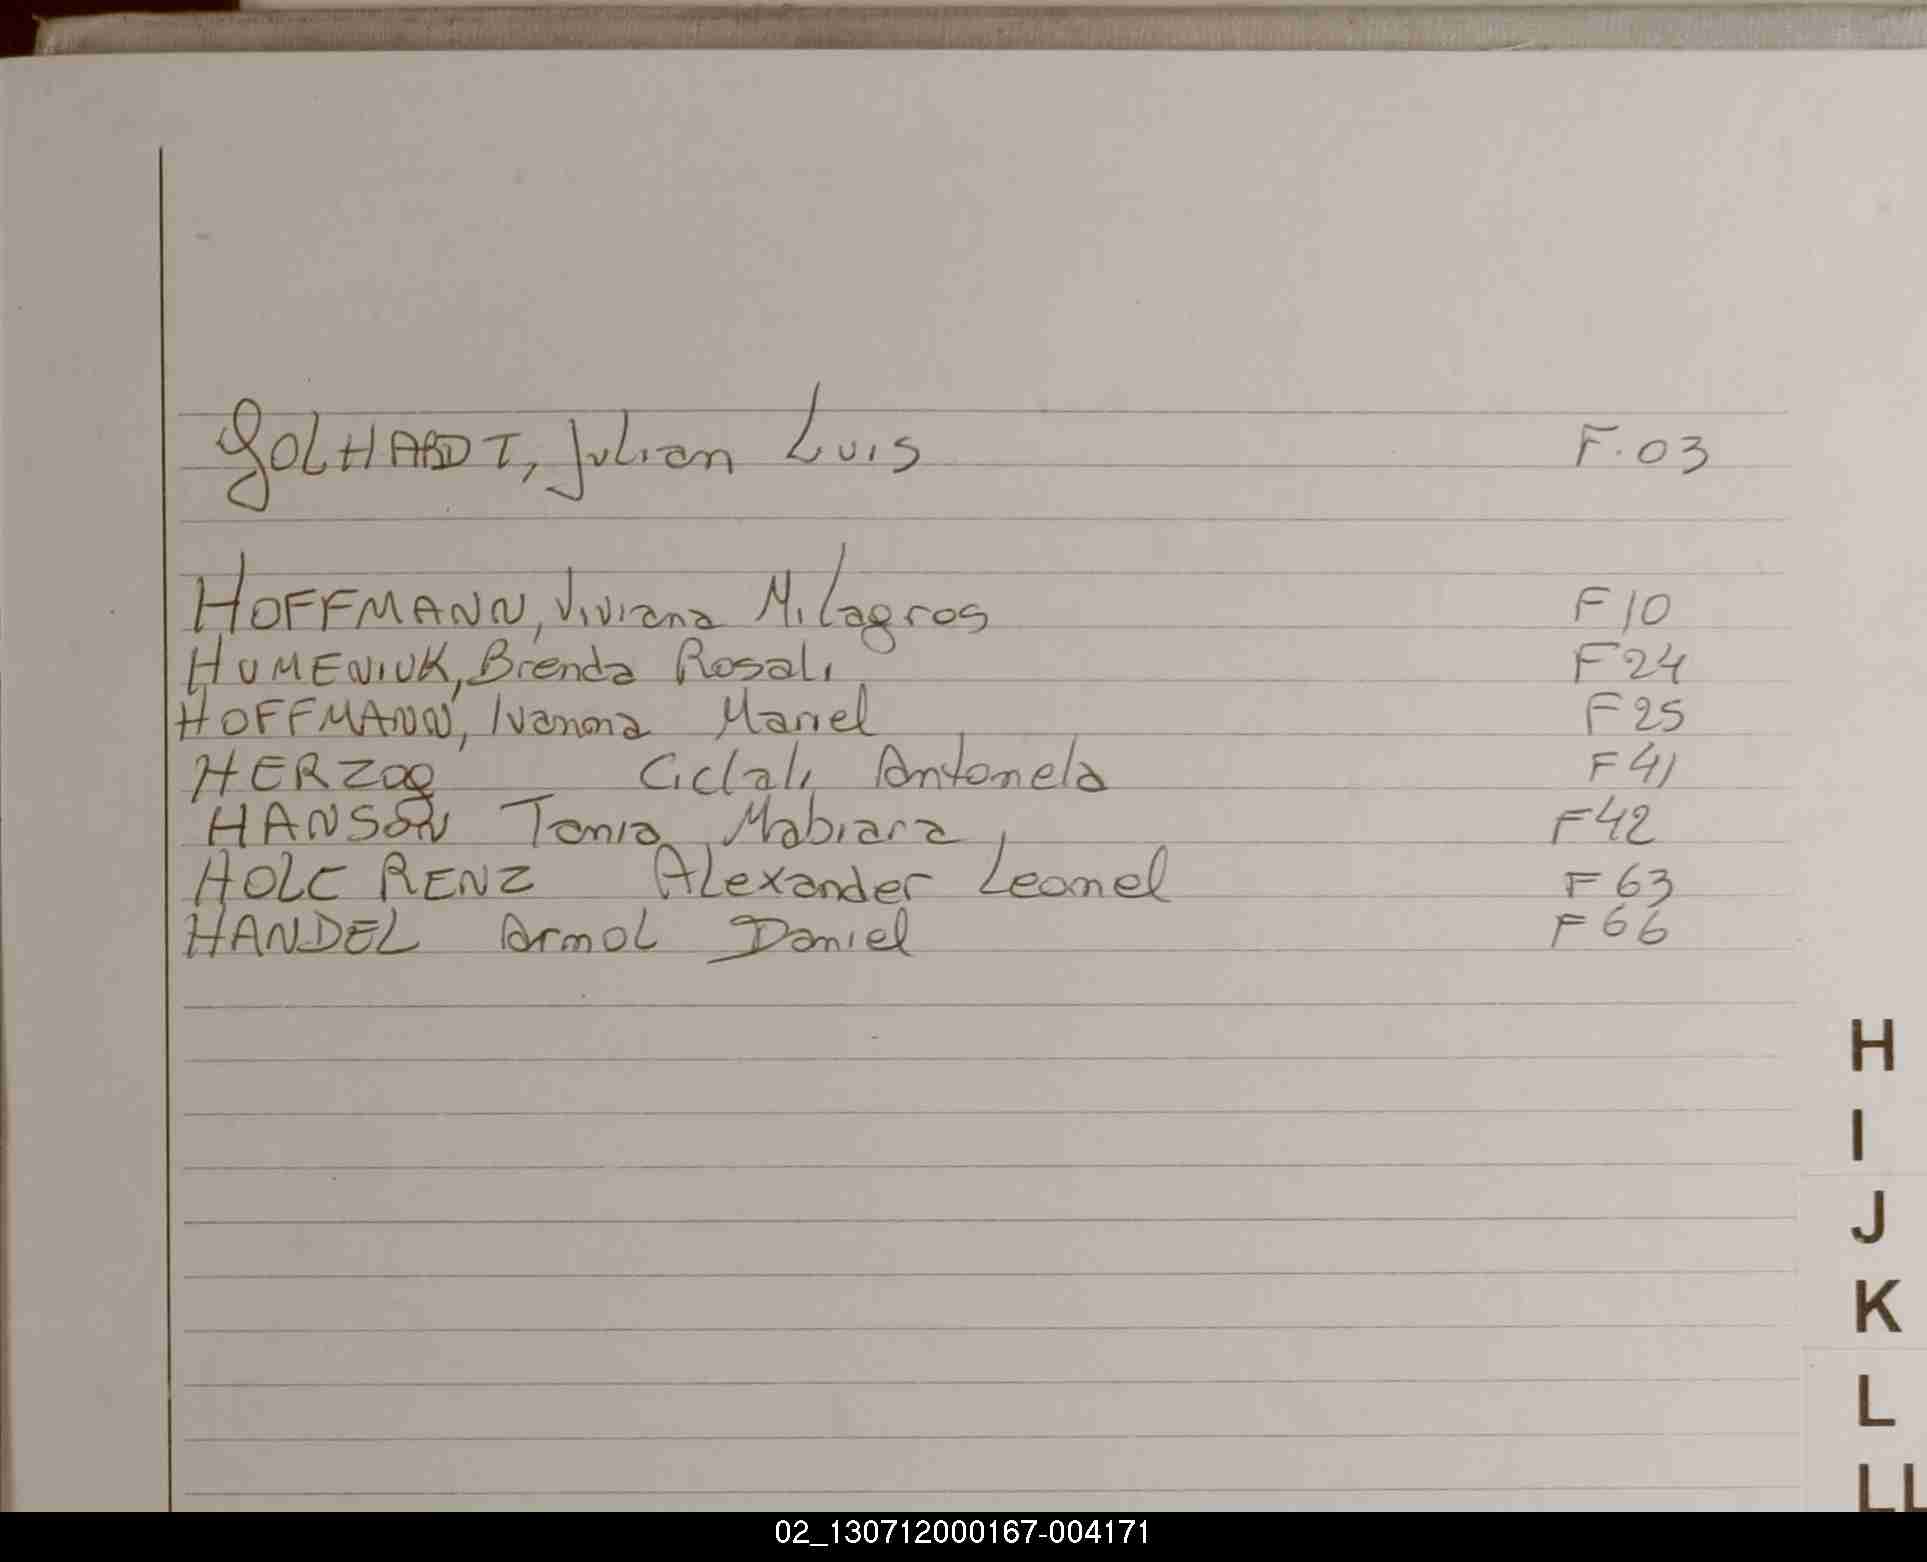 GOLHARDT, Julian Luis F.03
HOFFMANN, Viviana Milagros F10
HUMENIUK, Brenda Rosali F24
HOFFMANN, Ivanna Mariel F25
HERZOG Ciclali Antonela F41
HANSON Tania Mabiara F42
HOLC RENZ Alexander Leonel F63
HANDEL Arnol Daniel F66
H
I
J
K
L
LL
02_130712000167-004171